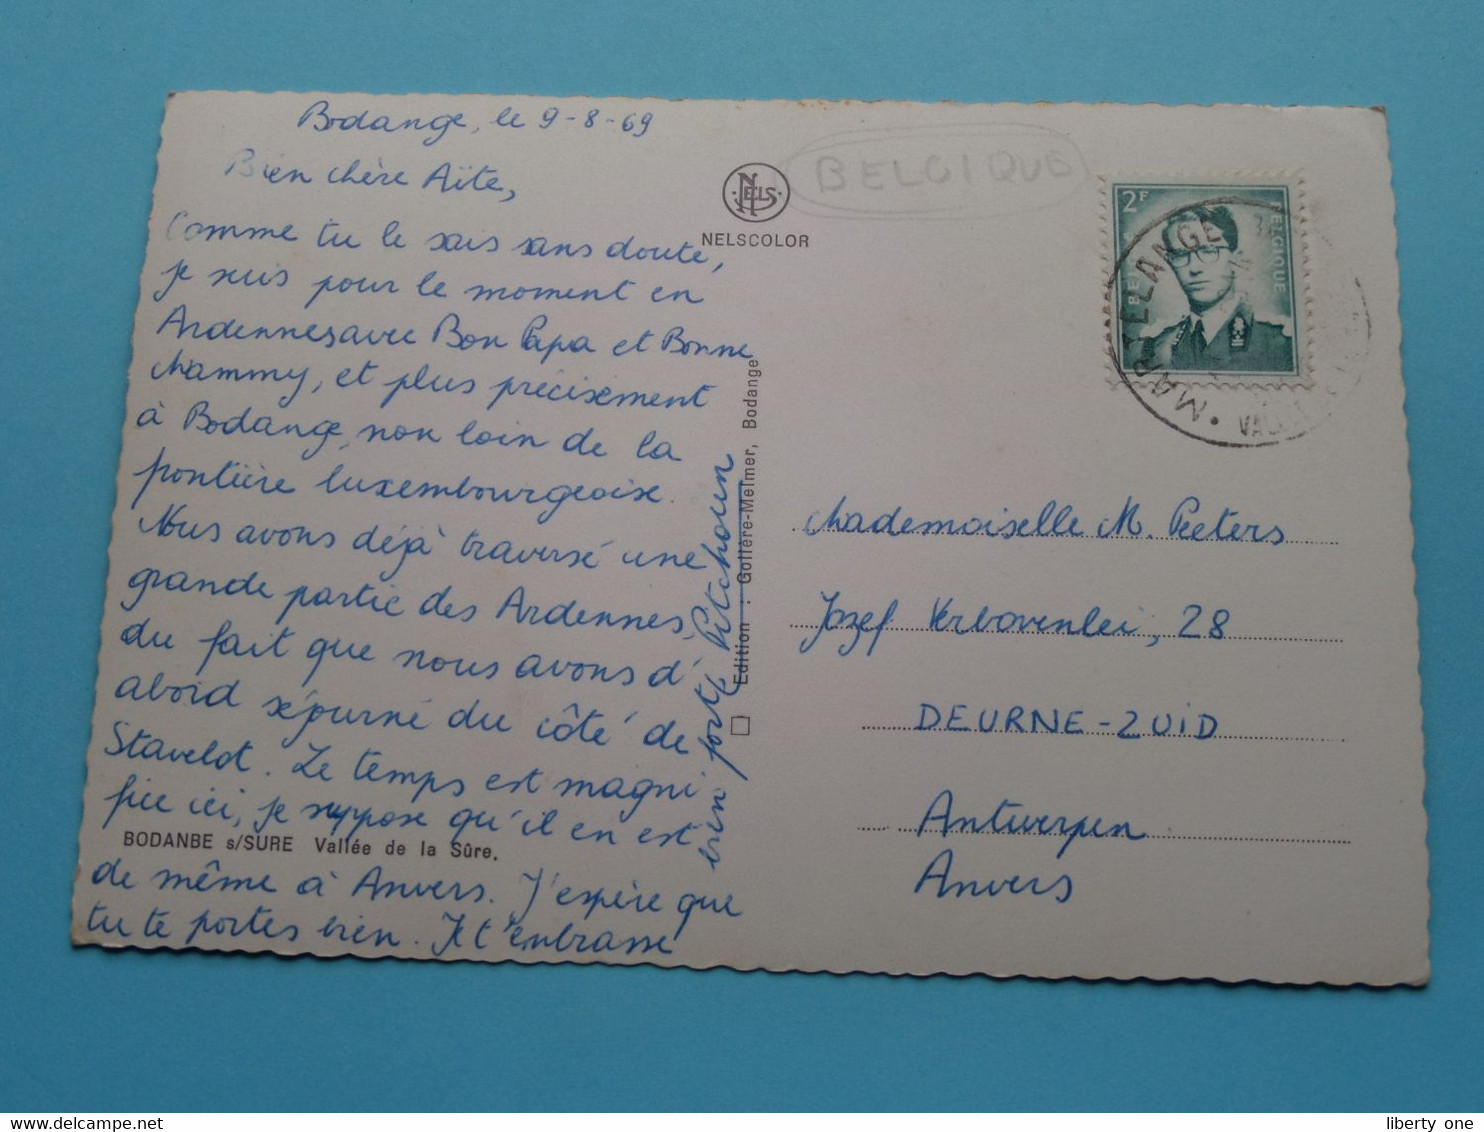 Bodange, le 9-8-69
Bien chère Aïte,
Comme tu le sais sans doute,
je suis pour le moment en
Ardennes avec Bon Papa et Bonne
Mammy, et plus précisément
à Bodange, non loin de la
frontière luxembourgeoise.
Nous avons déjà traversé une
grande partie des Ardennes,
du fait que nous avons d'
abord séjourné du côté de
Stavelot. Le temps est magni
fice ici, je suppose qu'il en est
BODANBE s/SURE Vallée de la Sûre.
de même à Anvers. J'espère que
tu te portes bien. Je t'embrasse
bien fort, Pitchoun
NELS
NELSCOLOR
Edition : Gollère-Melmer, Bodange
BELGIQUE
2F
BELGIQUE
MARTELANGE
Mademoiselle M. Peeters
Jozef Verbovenlei, 28
DEURNE-ZUID
Antwerpen
Anvers
www.delcampe.net
liberty one